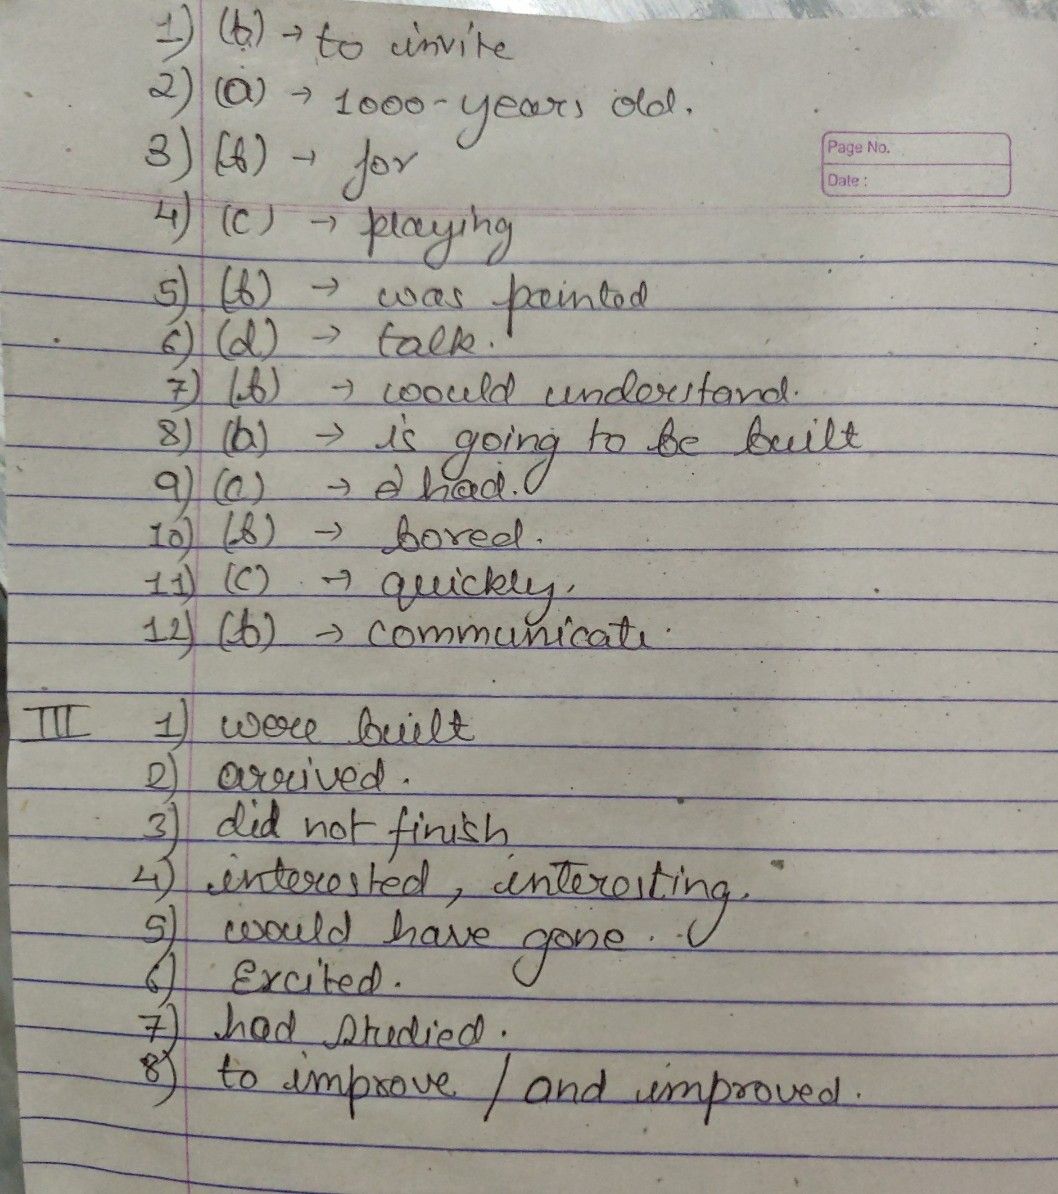 1) (b) → to invite
2) (a) → 1000-years old.
3) (b) → for
Page No.
Date :
4) (c) → playing
5) (b) → was painted
6) (d) → talk.
7) (b) → would understand.
8) (a) → is going to be built
9) (c) → I had.
10) (b) → bored.
11) (c) → quickly.
12) (b) → communicate.
III 1) were built
2) arrived.
3) did not finish
4) interested, interesting.
5) would have gone.
6) Excited.
7) had studied.
8) to improve / and improved.